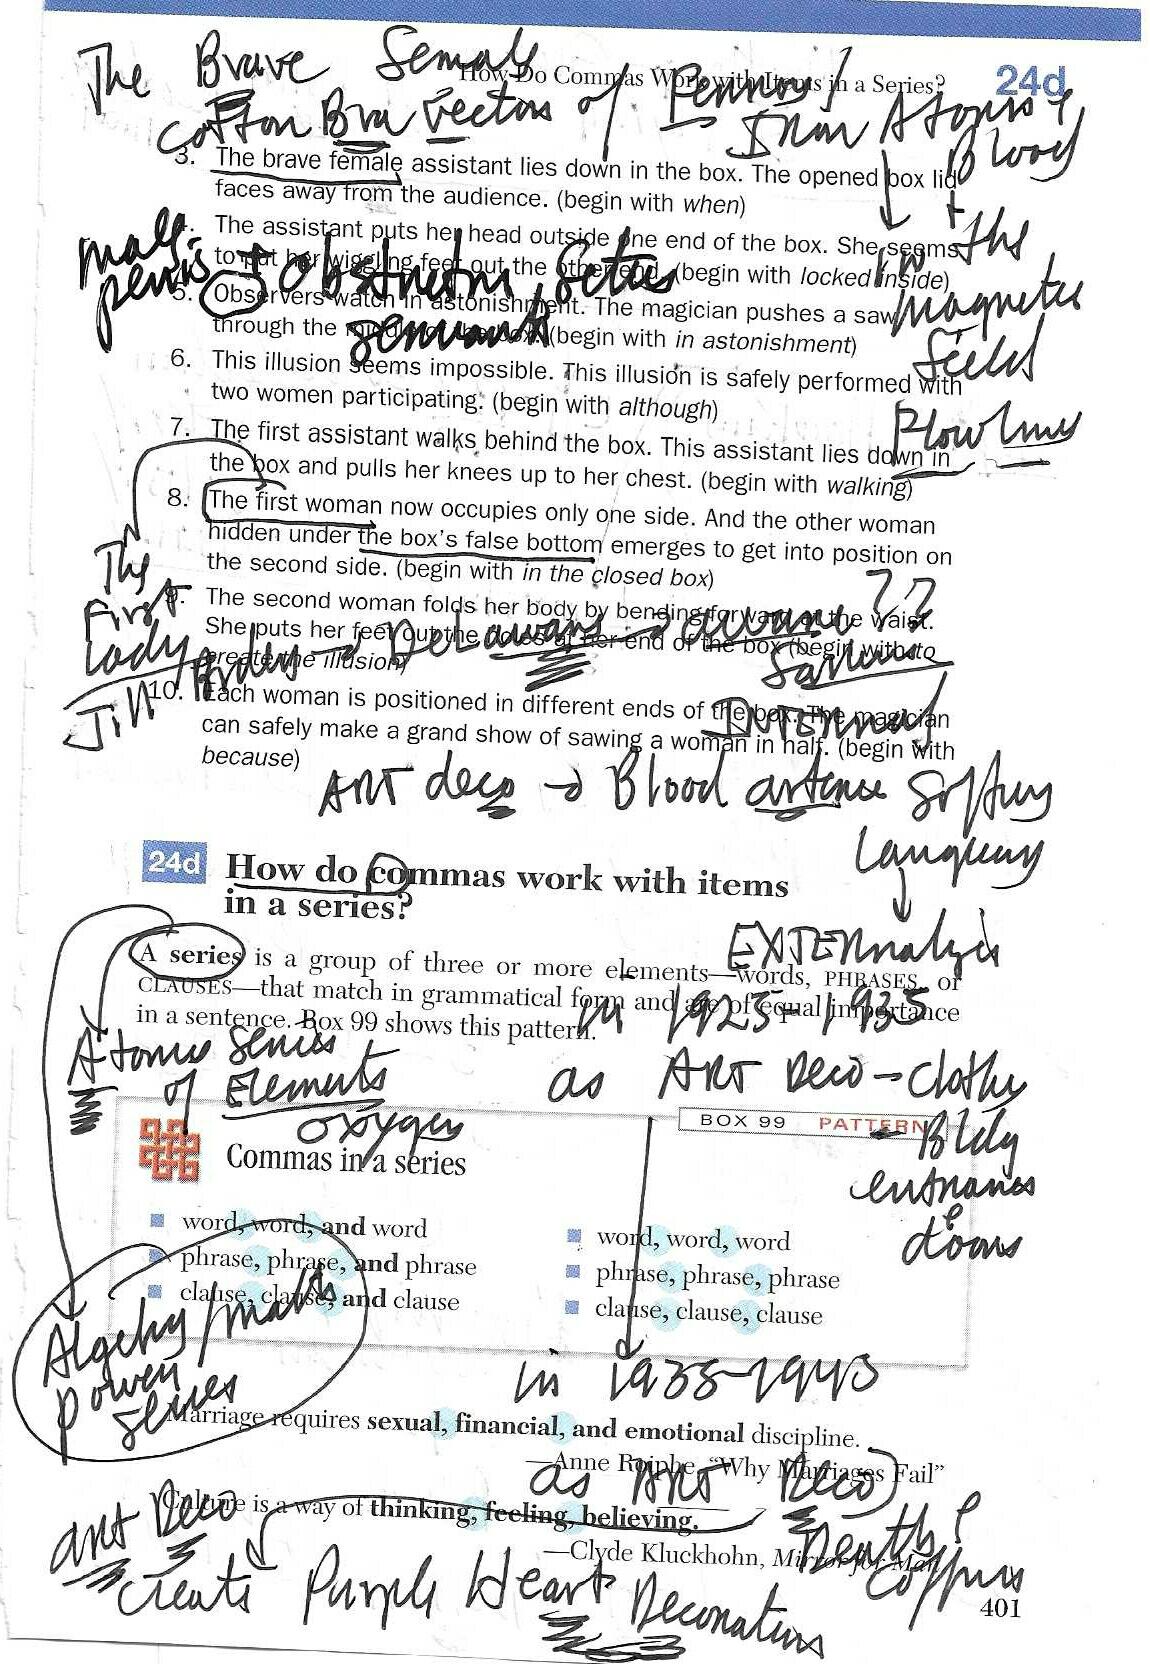 The Brave Female
How Do Commas Work with Items in a Series? 24d
cotton Bra vectors of Pennos!
Iron Atoms &
Blood
3. The brave female assistant lies down in the box. The opened box lid
faces away from the audience. (begin with when)
4. The assistant puts her head outside one end of the box. She seems
to put her wiggling feet out the other end. (begin with locked inside)
in the
magnetic
field
Flow lines
male
penis
Obstetrics fetus
5. Observers watch in astonishment. The magician pushes a saw
through the middle of the box. (begin with in astonishment)
6. This illusion seems impossible. This illusion is safely performed with
two women participating. (begin with although)
7. The first assistant walks behind the box. This assistant lies down in
the box and pulls her knees up to her chest. (begin with walking)
8. The first woman now occupies only one side. And the other woman
hidden under the box's false bottom emerges to get into position on
the second side. (begin with in the closed box)
The
First
Lady
Jill
9. The second woman folds her body by bending forward at the waist.
She puts her feet out the holes at her end of the box (begin with to
create the illusion)
DeLaware → aware ??
10. Each woman is positioned in different ends of the box. The magician
can safely make a grand show of sawing a woman in half. (begin with
because)
INTERnal
ART deco → Blood arteries Softwy
Languens
24d How do commas work with items
in a series?
EXTERnalizis
A series is a group of three or more elements—words, PHRASES, or
CLAUSES—that match in grammatical form and are of equal importance
in a sentence. Box 99 shows this pattern.
in 1925-1935
as ART Deco → Clothy
Bldg
entrances
& doors
Atoms series
of Elements
oxygen
BOX 99 PATTERN
Commas in a series
word, word, and word
phrase, phrase, and phrase
clause, clause, and clause
word, word, word
phrase, phrase, phrase
clause, clause, clause
Algebra/math
power
series
in 1938-1945
Marriage requires sexual, financial, and emotional discipline.
—Anne Roiphe, "Why Marriages Fail"
as ART Deco
Culture is a way of thinking, feeling, believing.
—Clyde Kluckhohn, Mirror for Man
Deaths &
coffins
art Deco
creats Purple Heart Decorations
401